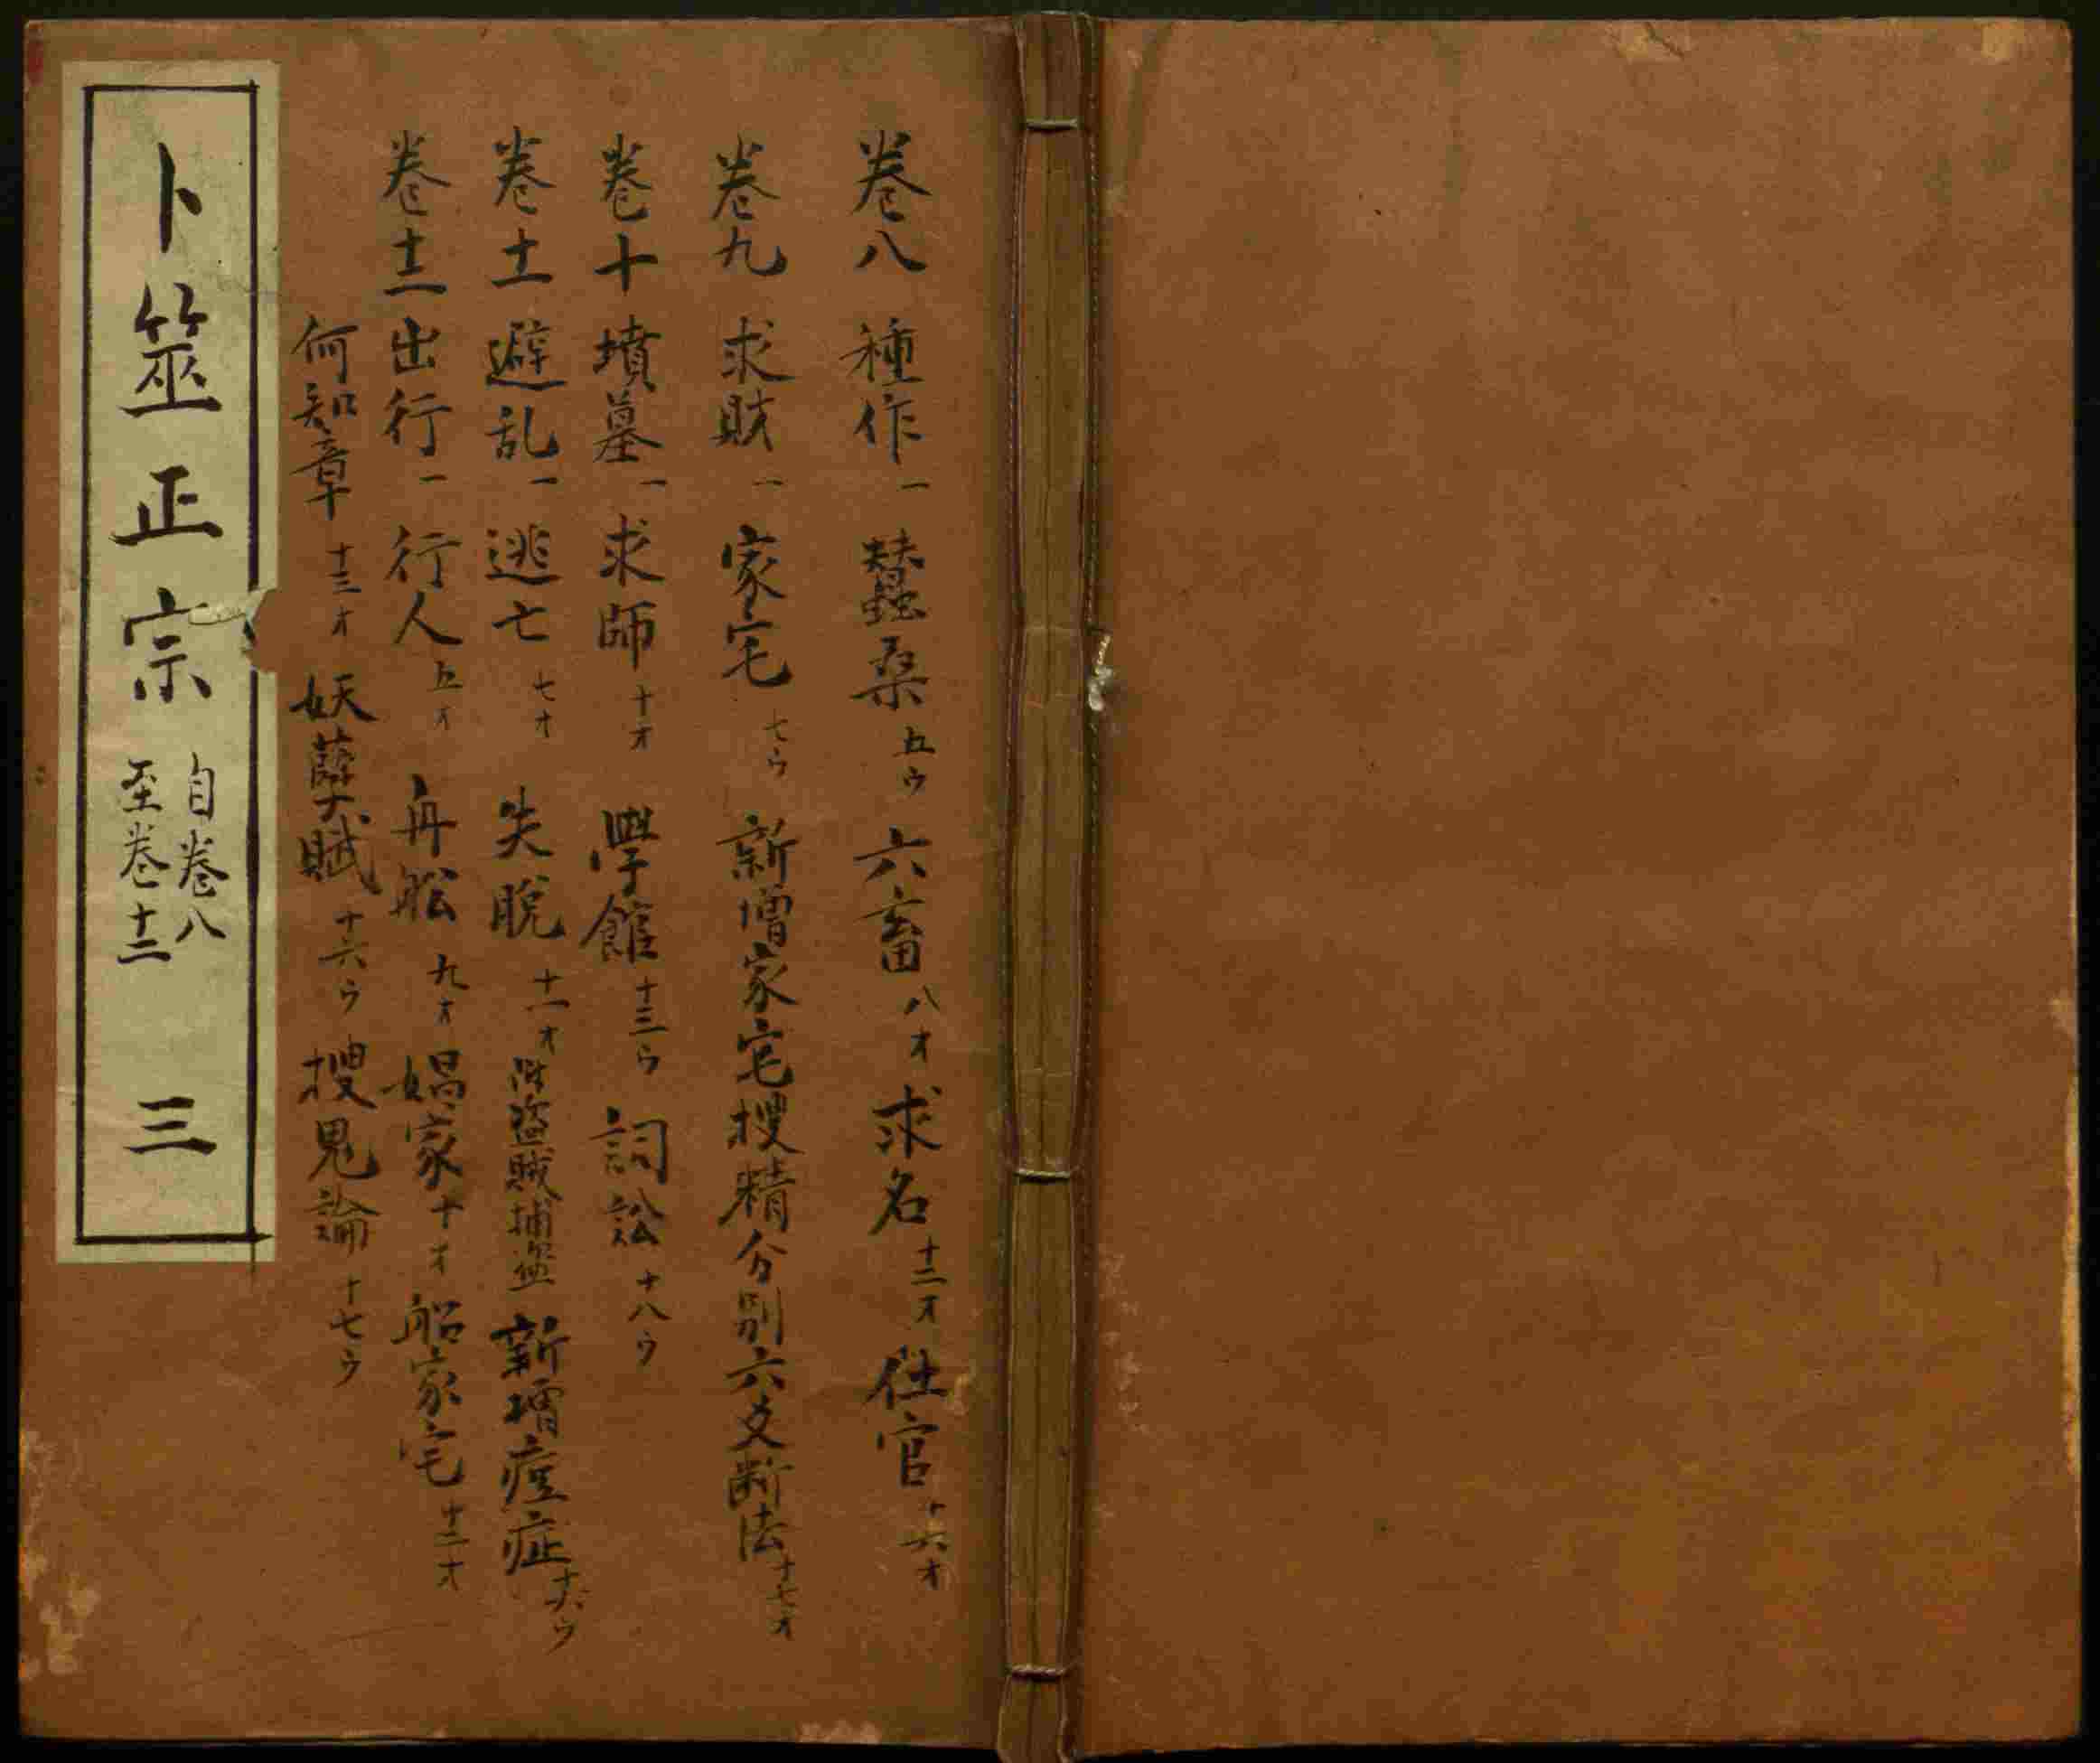 卷八 種作一 蠶桑五ウ 六畜八オ 求名十二オ 仕官十六オ
卷九 求財一 家宅七ウ 新增家宅搜精分別六爻断法十七オ
卷十 墳墓一 求師十オ 學館十三ウ 詞訟十八ウ
卷十一 避乱一 逃亡七オ 失脱十一オ 附盗賊捕盗 新增痘症十六ウ
卷十二 出行一 行人五オ 舟舩九オ 娼家十オ 船家宅十二オ
何知章十三オ 妖孽賦十六ウ 搜鬼論十七ウ
卜筮正宗 自卷八
至卷十二 三